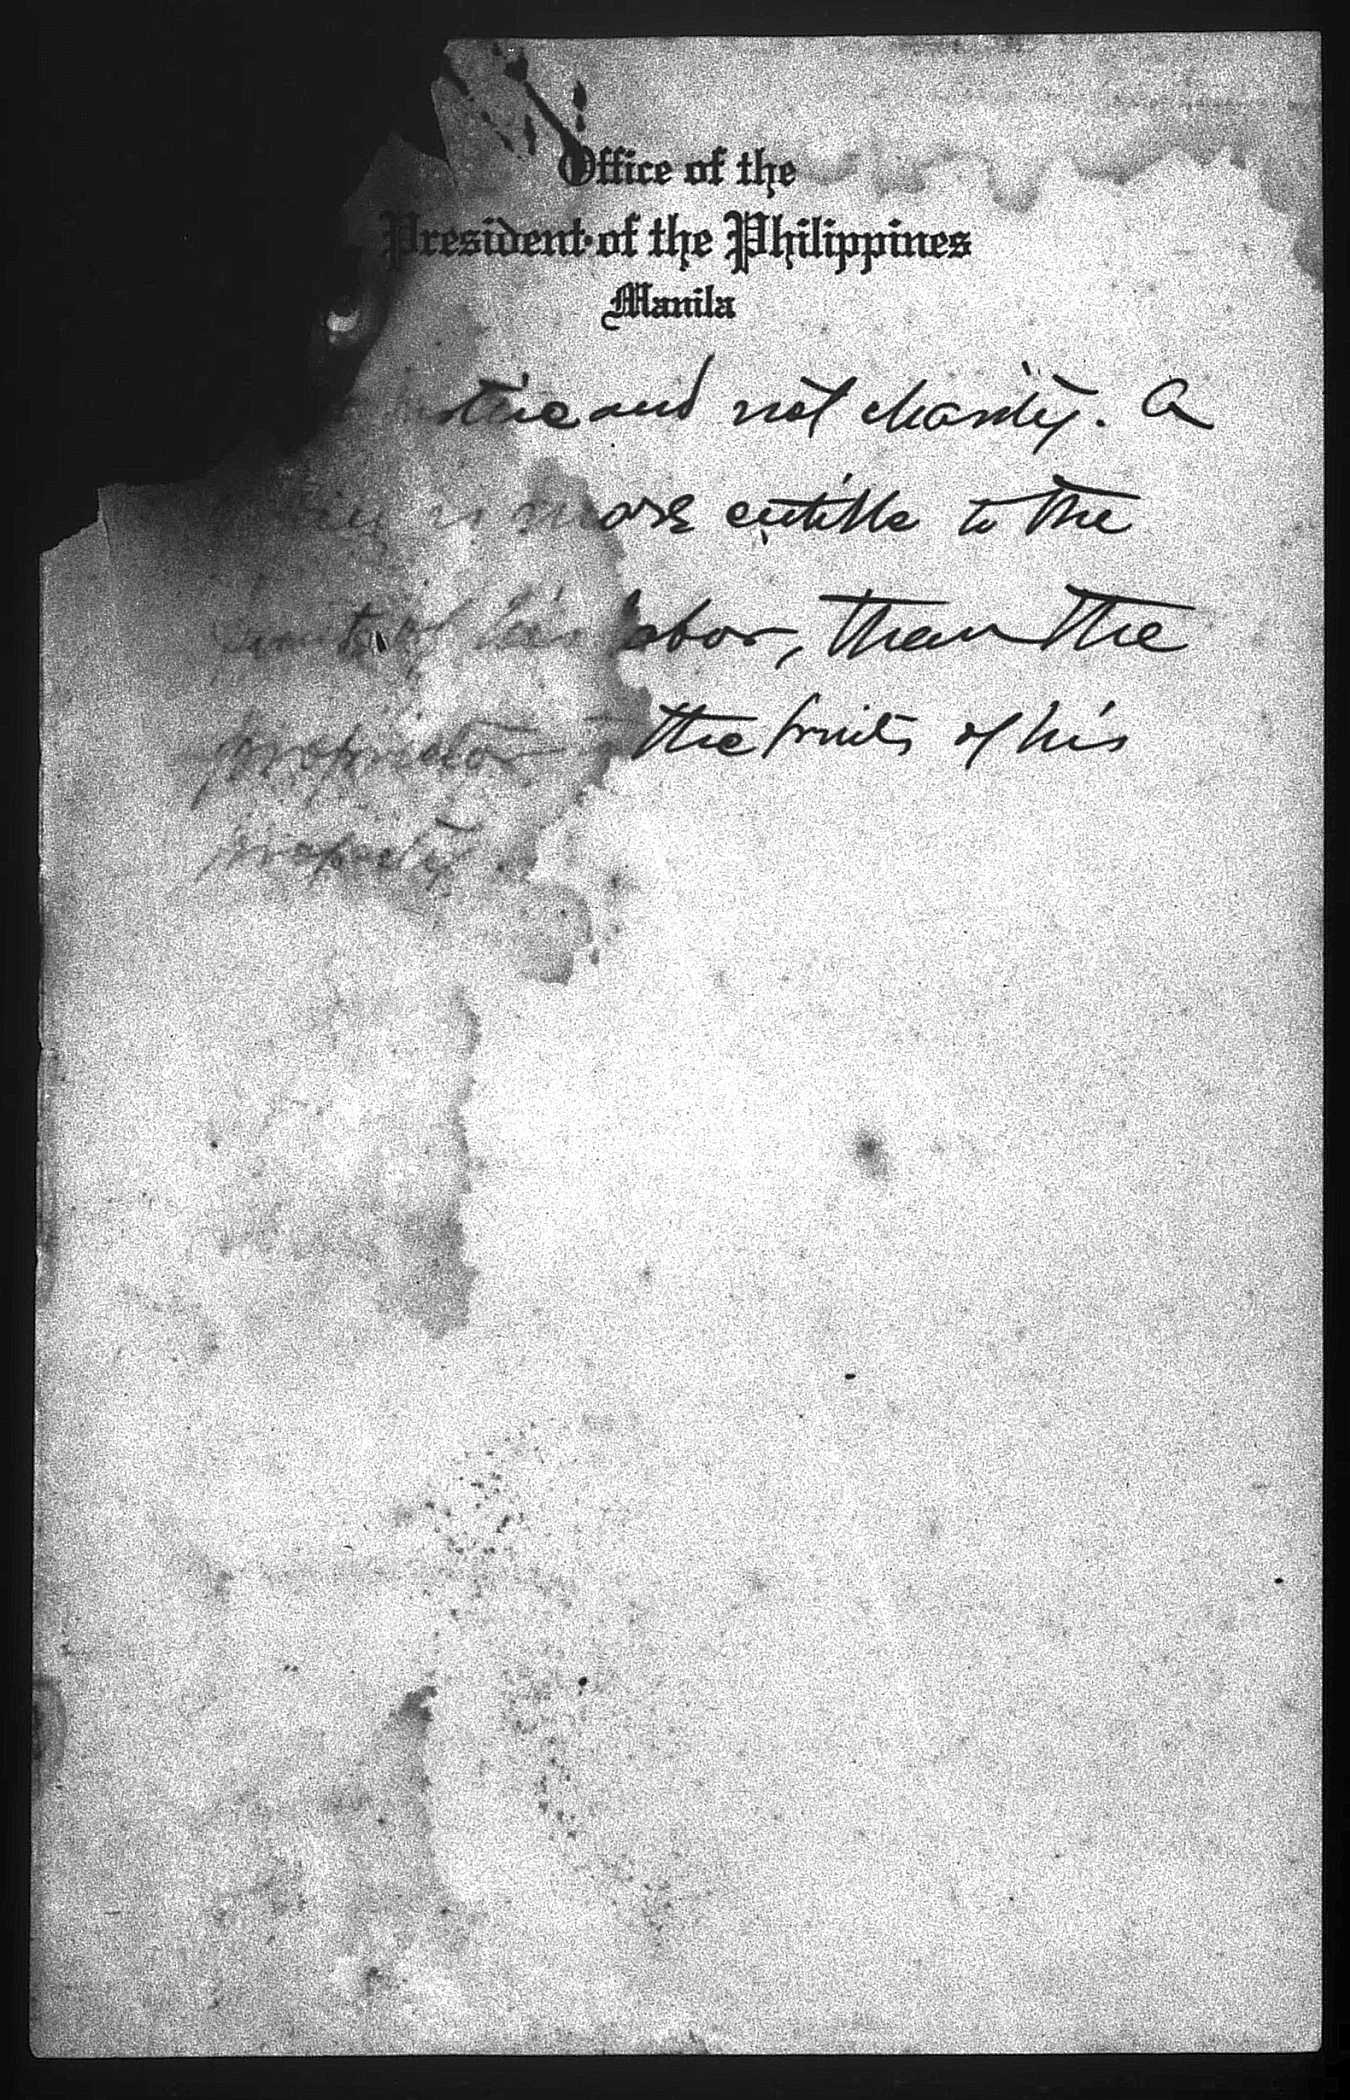 Office of the
President of the Philippines
Manila
justice and not charity. A
is more entitle to the
fruits of his labor, than the
proprietor to the fruits of his
property.